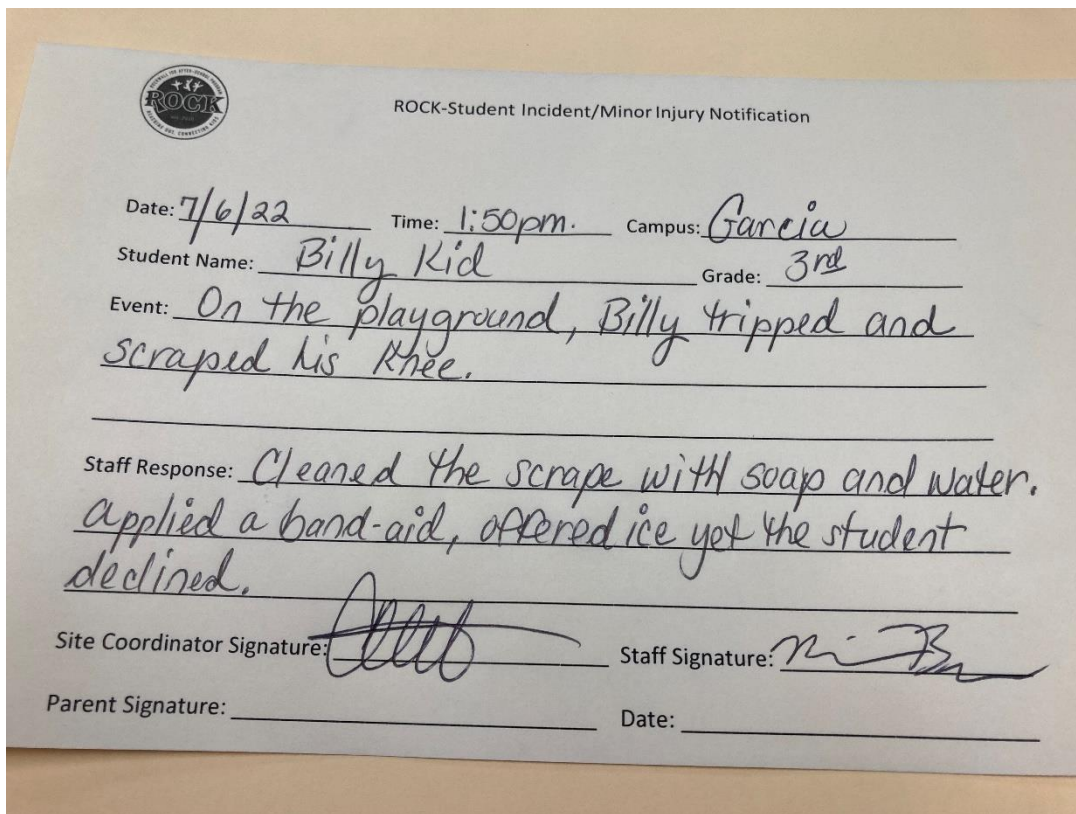 ROCK
ROCK-Student Incident/Minor Injury Notification
Date: 7/6/22 Time: 1:50pm. Campus: Garcia
Student Name: Billy Kid Grade: 3rd
Event: On the playground, Billy tripped and
scraped his knee.
Staff Response: Cleaned the scrape with soap and water.
applied a band-aid, offered ice yet the student
declined.
Site Coordinator Signature: Staff Signature:
Parent Signature: Date: